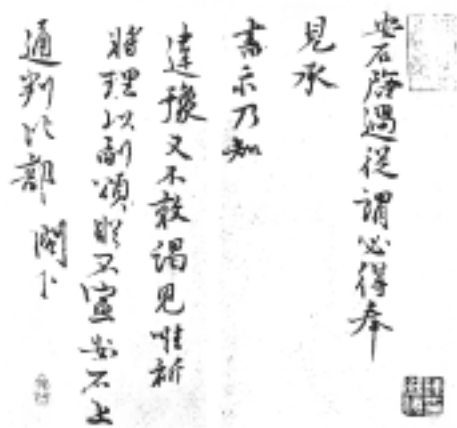 安石啓過從謂必得奉
見承
書示乃知
違豫又不敢謁見唯祈
將理以副頃眤又宣安石上
通判比部 閤下